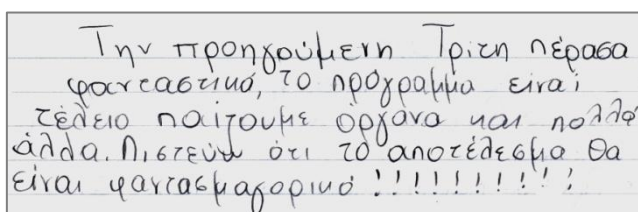 Την προηγούμενη Τρίτη πέρασα
φανταστικά, το πρόγραμμα είναι
τέλειο παίζουμε όργανα και πολλά
άλλα. Πιστεύω ότι το αποτέλεσμα θα
είναι φαντασμαγορικό !!!!!!!!!!